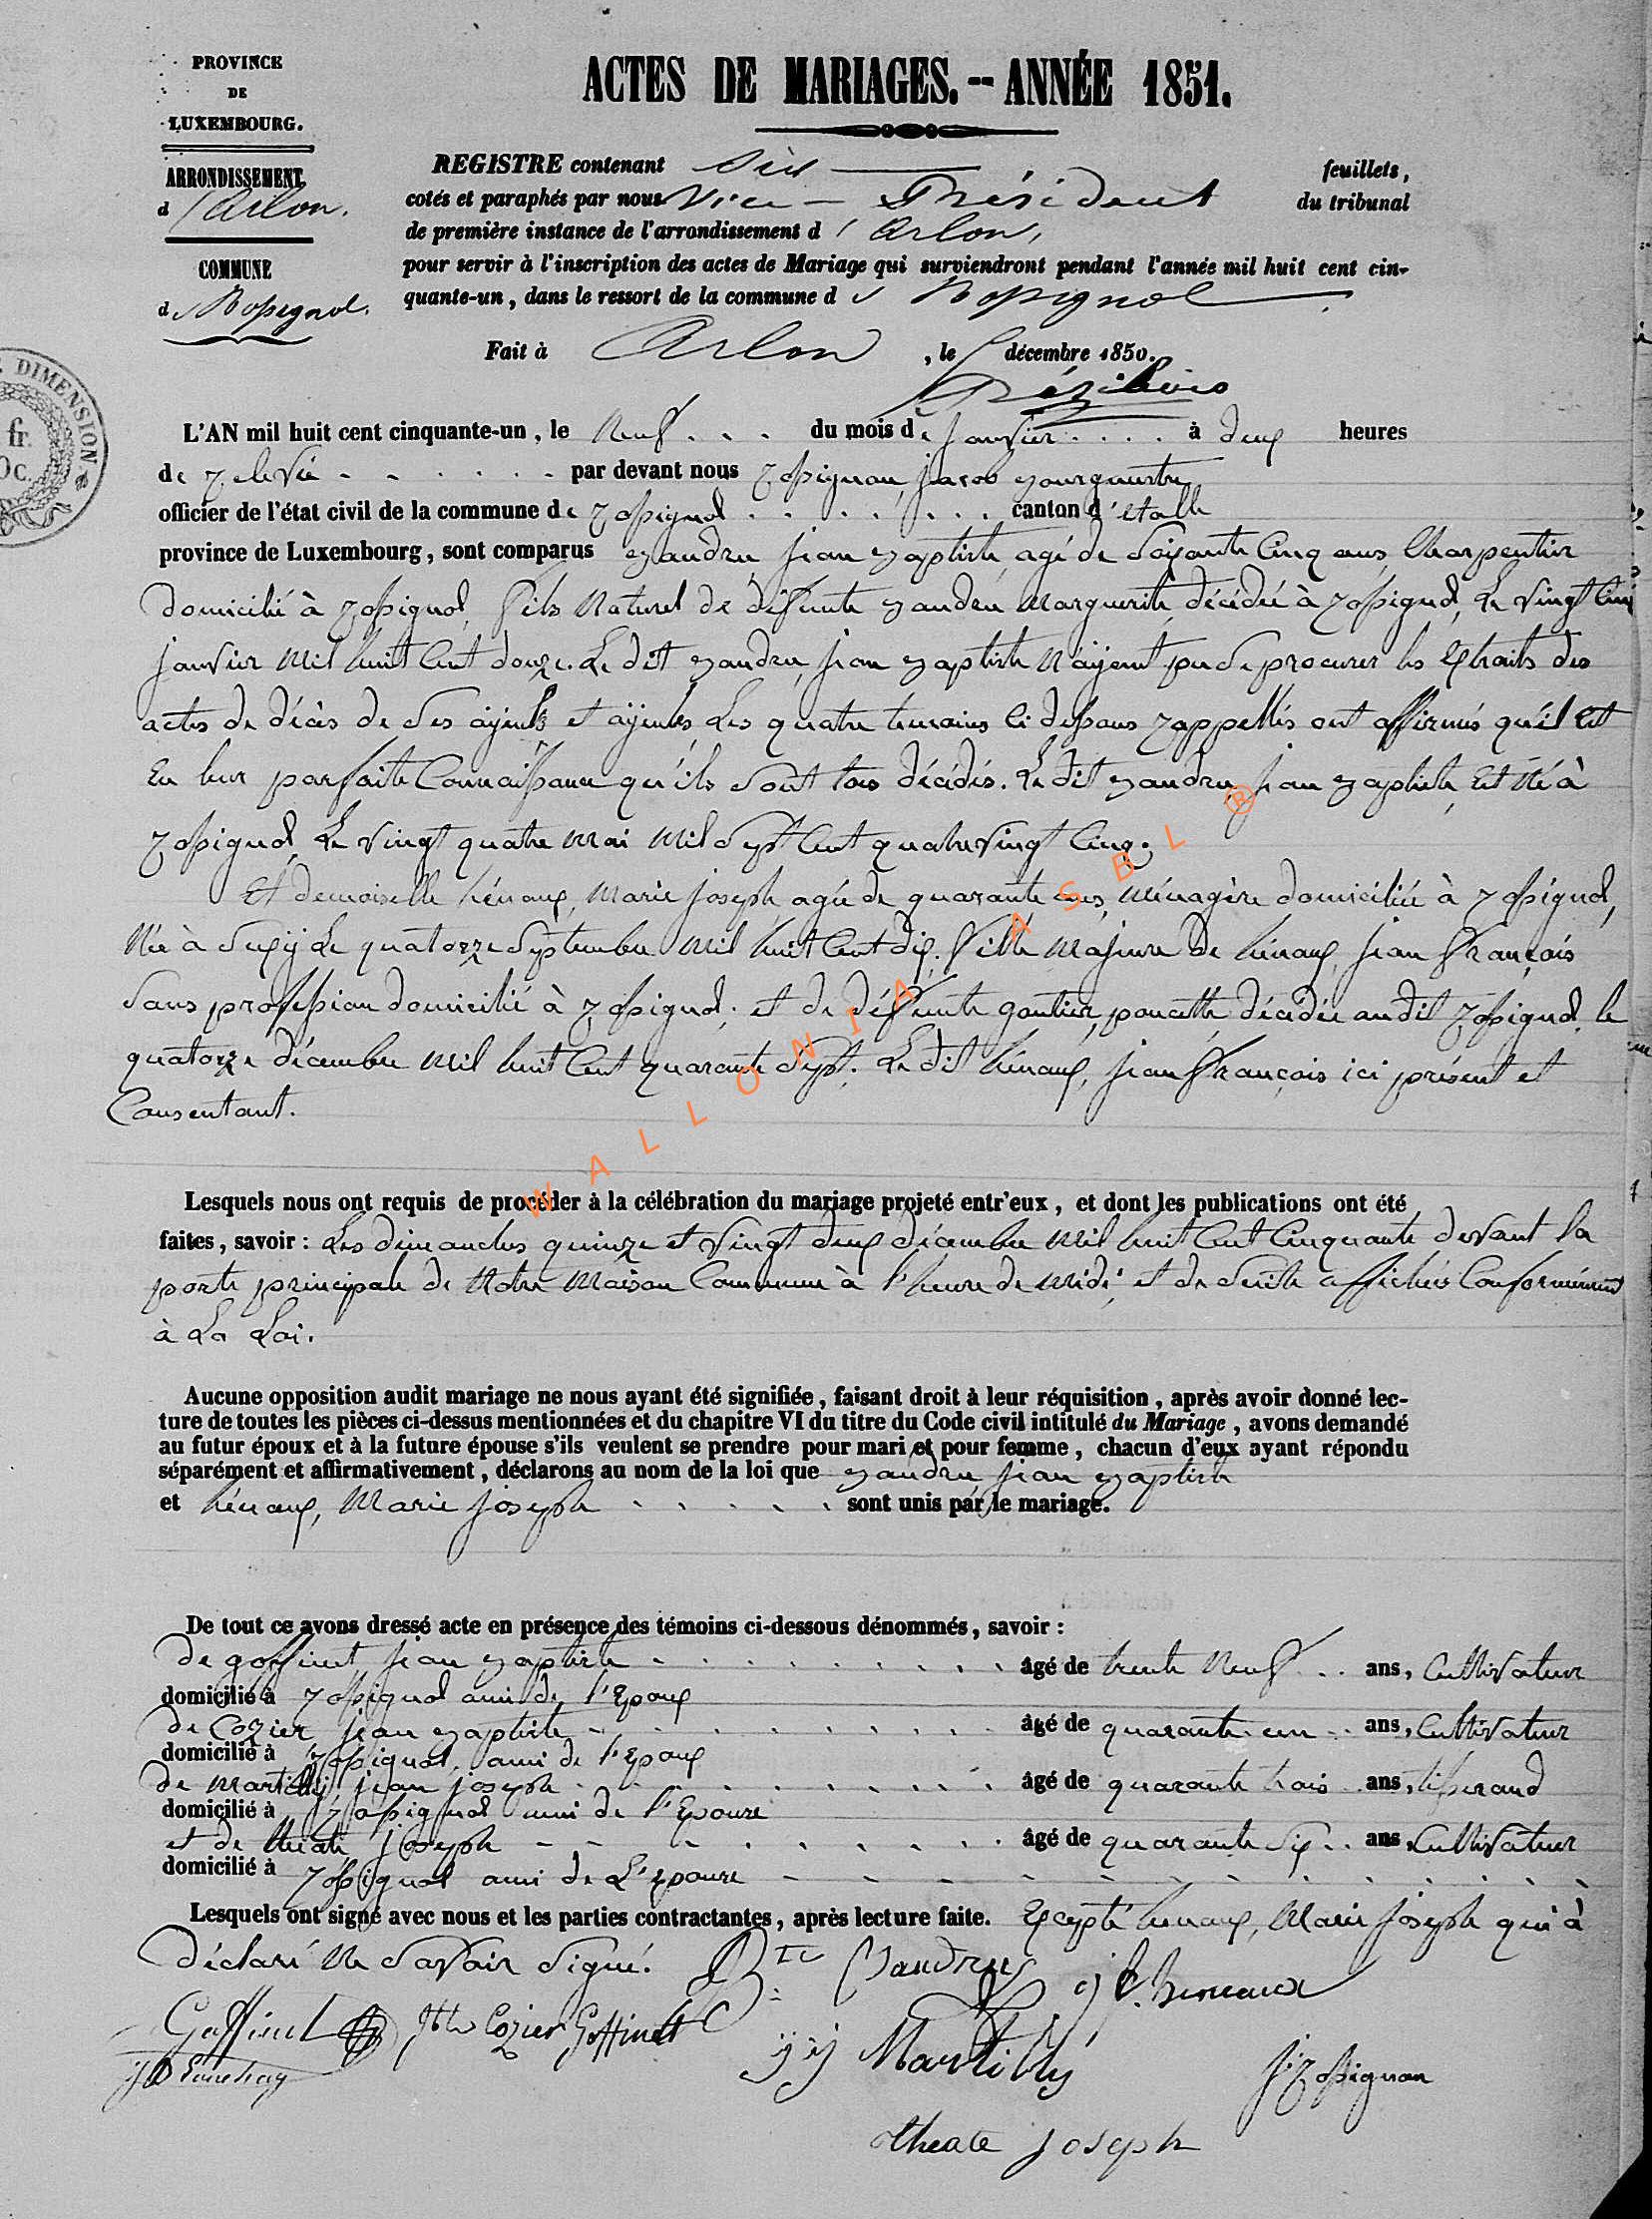 PROVINCE
DE
LUXEMBOURG.
ARRONDISSEMENT
d'Arlon.
COMMUNE
de Rossignol.
ACTES DE MARIAGES. -- ANNÉE 1851.
REGISTRE contenant Six feuillets,
cotés et paraphés par nous Vice-Président du tribunal
de première instance de l'arrondissement d'Arlon,
pour servir à l'inscription des actes de Mariage qui surviendront pendant l'année mil huit cent cin-
quante-un, dans le ressort de la commune de Rossignol.
Fait à Arlon, le décembre 1850.
DIMENSION
fr.
0c.
L'AN mil huit cent cinquante-un, le Neuf . . . du mois de janvier . . . . à deux heures
de relevée - - . . . . - par devant nous Rossignon, jacob Bourguestre
officier de l'état civil de la commune de Rossignol . . . . . . . canton d'étalle
province de Luxembourg, sont comparus Baudru jean Baptiste, agé de Soixante Cinq ans, Charpentier
domicilié à Rossignol, fils Naturel de défunte Baudru Marguerite, décédée à Rossignol, Le vingt Cinq
janvier Mil huit Cent douze. Le dit Baudru, jean Baptiste N'ayent pu Se procurer les Extraits des
actes de décès de Ses ayeuls et ayeules Les quatre témoins Ci dessous Rappellés ont affirmés qu'il Est
En leur parfaite Connaissance qu'ils Sont tous décédés. Le dit Baudru, jean Baptiste, Est Né à
Rossignol, Le vingt quatre Mai Mil Sept Cent quatrevingt Cinq.
Et demoiselle hénaux, Marie joseph, agée de quarante ans, Ménagère domiciliée à Rossignol,
Née à Suxÿ Le quatorze Septembre Mil huit Cent dix. fille Majeure de hénaux, jean françois
Sans profession domicilié à Rossignol; et de défunte gontier, poncette, décédée audit Rossignol, le
quatorze décembre Mil huit Cent quarante Sept. Le dit hénaux, jean françois ici présent et
Consentant.
Lesquels nous ont requis de procéder à la célébration du mariage projeté entr'eux, et dont les publications ont été
faites, savoir : Les dimanches quinze et vingt deux décembre Mil huit Cent Cinquante devant la
porte principale de Notre Maison Commune à l'heure de Midi; et de Suite affichés Conformément
à La Loi.
Aucune opposition audit mariage ne nous ayant été signifiée, faisant droit à leur réquisition, après avoir donné lec-
ture de toutes les pièces ci-dessus mentionnées et du chapitre VI du titre du Code civil intitulé du Mariage, avons demandé
au futur époux et à la future épouse s'ils veulent se prendre pour mari et pour femme, chacun d'eux ayant répondu
séparément et affirmativement, déclarons au nom de la loi que Baudru jean Baptiste
et hénaux, Marie joseph . . . . . . sont unis par le mariage.
De tout ce avons dressé acte en présence des témoins ci-dessous dénommés, savoir :
De goffinet, jean Baptiste - . . . . . . . . âgé de trente Neuf . . ans, Cultivateur
domicilié à Rossignol ami de l'Epoux
de Cozier, jean Baptiste - . . . . . . . . âgé de quarante un . . ans, Cultivateur
domicilié à Rossignol, ami de l'Epoux
de Martilly, jean joseph . . . . . . . . . âgé de quarante trois . . ans, tisserand
domicilié à Rossignol ami de l'Epouse
et de théate, joseph - - . . . . . . . âgé de quarante Six . . ans, Cultivateur
domicilié à Rossignol ami de L'Epouse - - - - - - - - - -
Lesquels ont signé avec nous et les parties contractantes, après lecture faite. Excepté henaux, Marie joseph qui à
déclaré Ne Savoir Signé. Bte Baudru j f. henaux
Goffinet jbte Cozier Goffinet
jj Martilly jRossignon
theate joseph
WALLONIA ASBL ®